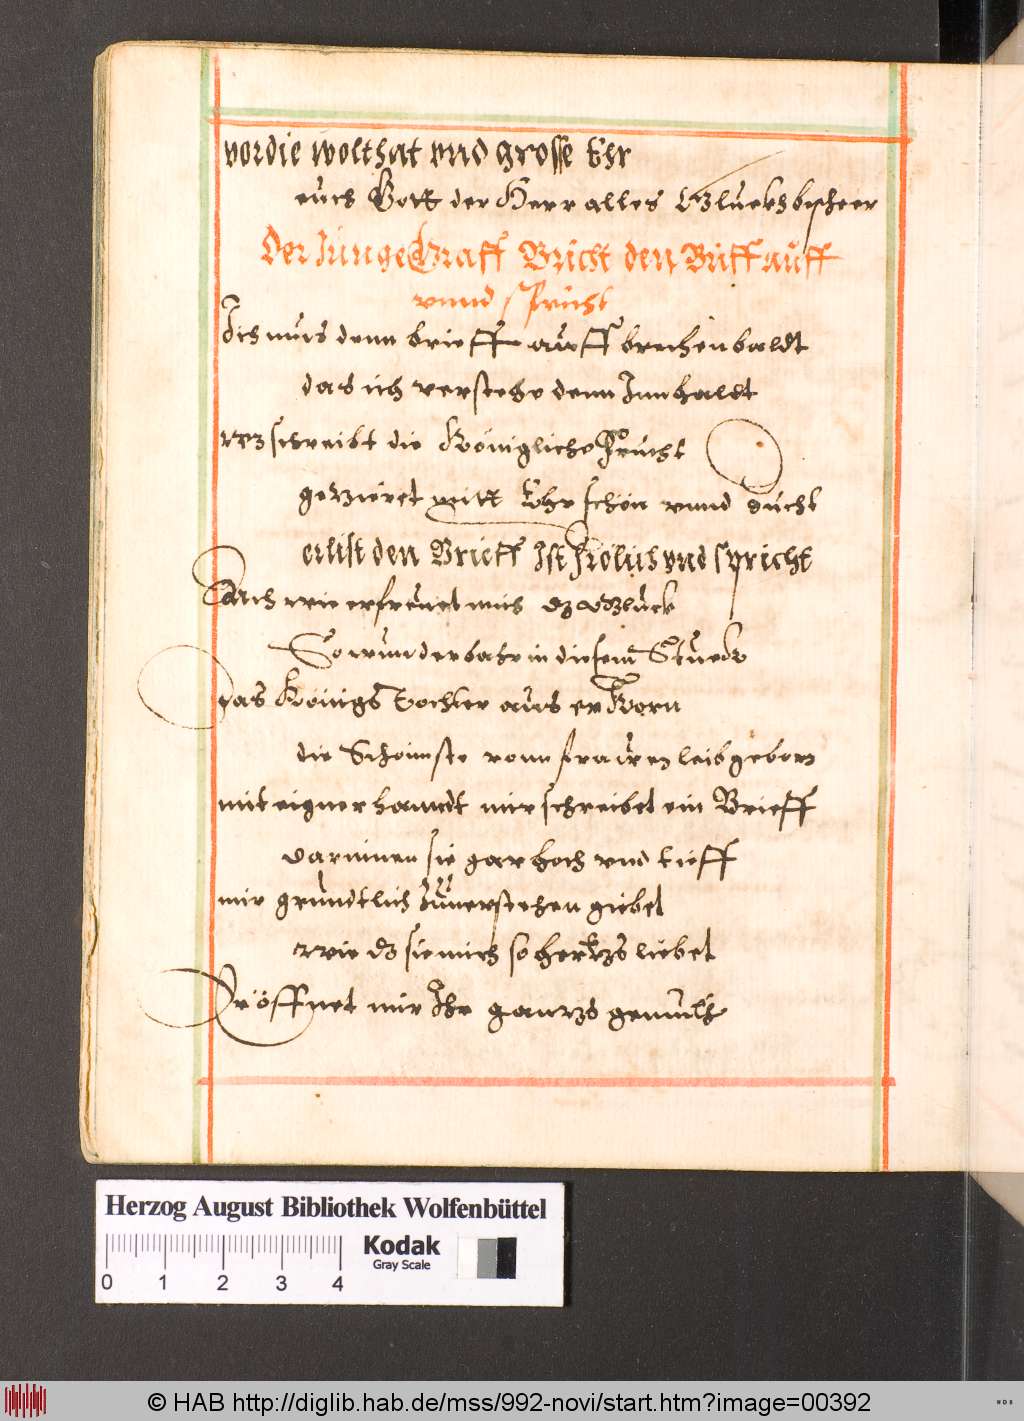 vor die wolthat vnd grosse Ehr
euch Gott der Herr alles Gluekzbescheer
Der Junge Graff Bricht den Briff auff
vnnd spricht
Ich mus denn brieff auff brechen baldt
das ich verstehe denn Innhaldt
schreibt die Königliche Frucht
gezieret mitt Ehr schön vnnd zucht
erlist den Brieff Ist frölich vnd spricht
Ach wie erfreuet mich dz Glück
So wunderbahr in diesem Stuedk
das Königs Tochter aus er Korn
die Schönnste vonn frawen leib geborn
mit eigner hanndt mir schreibet ein Brieff
darinnen sie gar hoch vnd tieff
mir gründtlich Zuuerstehen giebet
wie dz sie mich so hertzs liebet
eröffnet mir Ihr gantzs gemüth
Herzog August Bibliothek Wolfenbüttel
Kodak
Gray Scale
0 1 2 3 4
© HAB http://diglib.hab.de/mss/992-novi/start.htm?image=00392